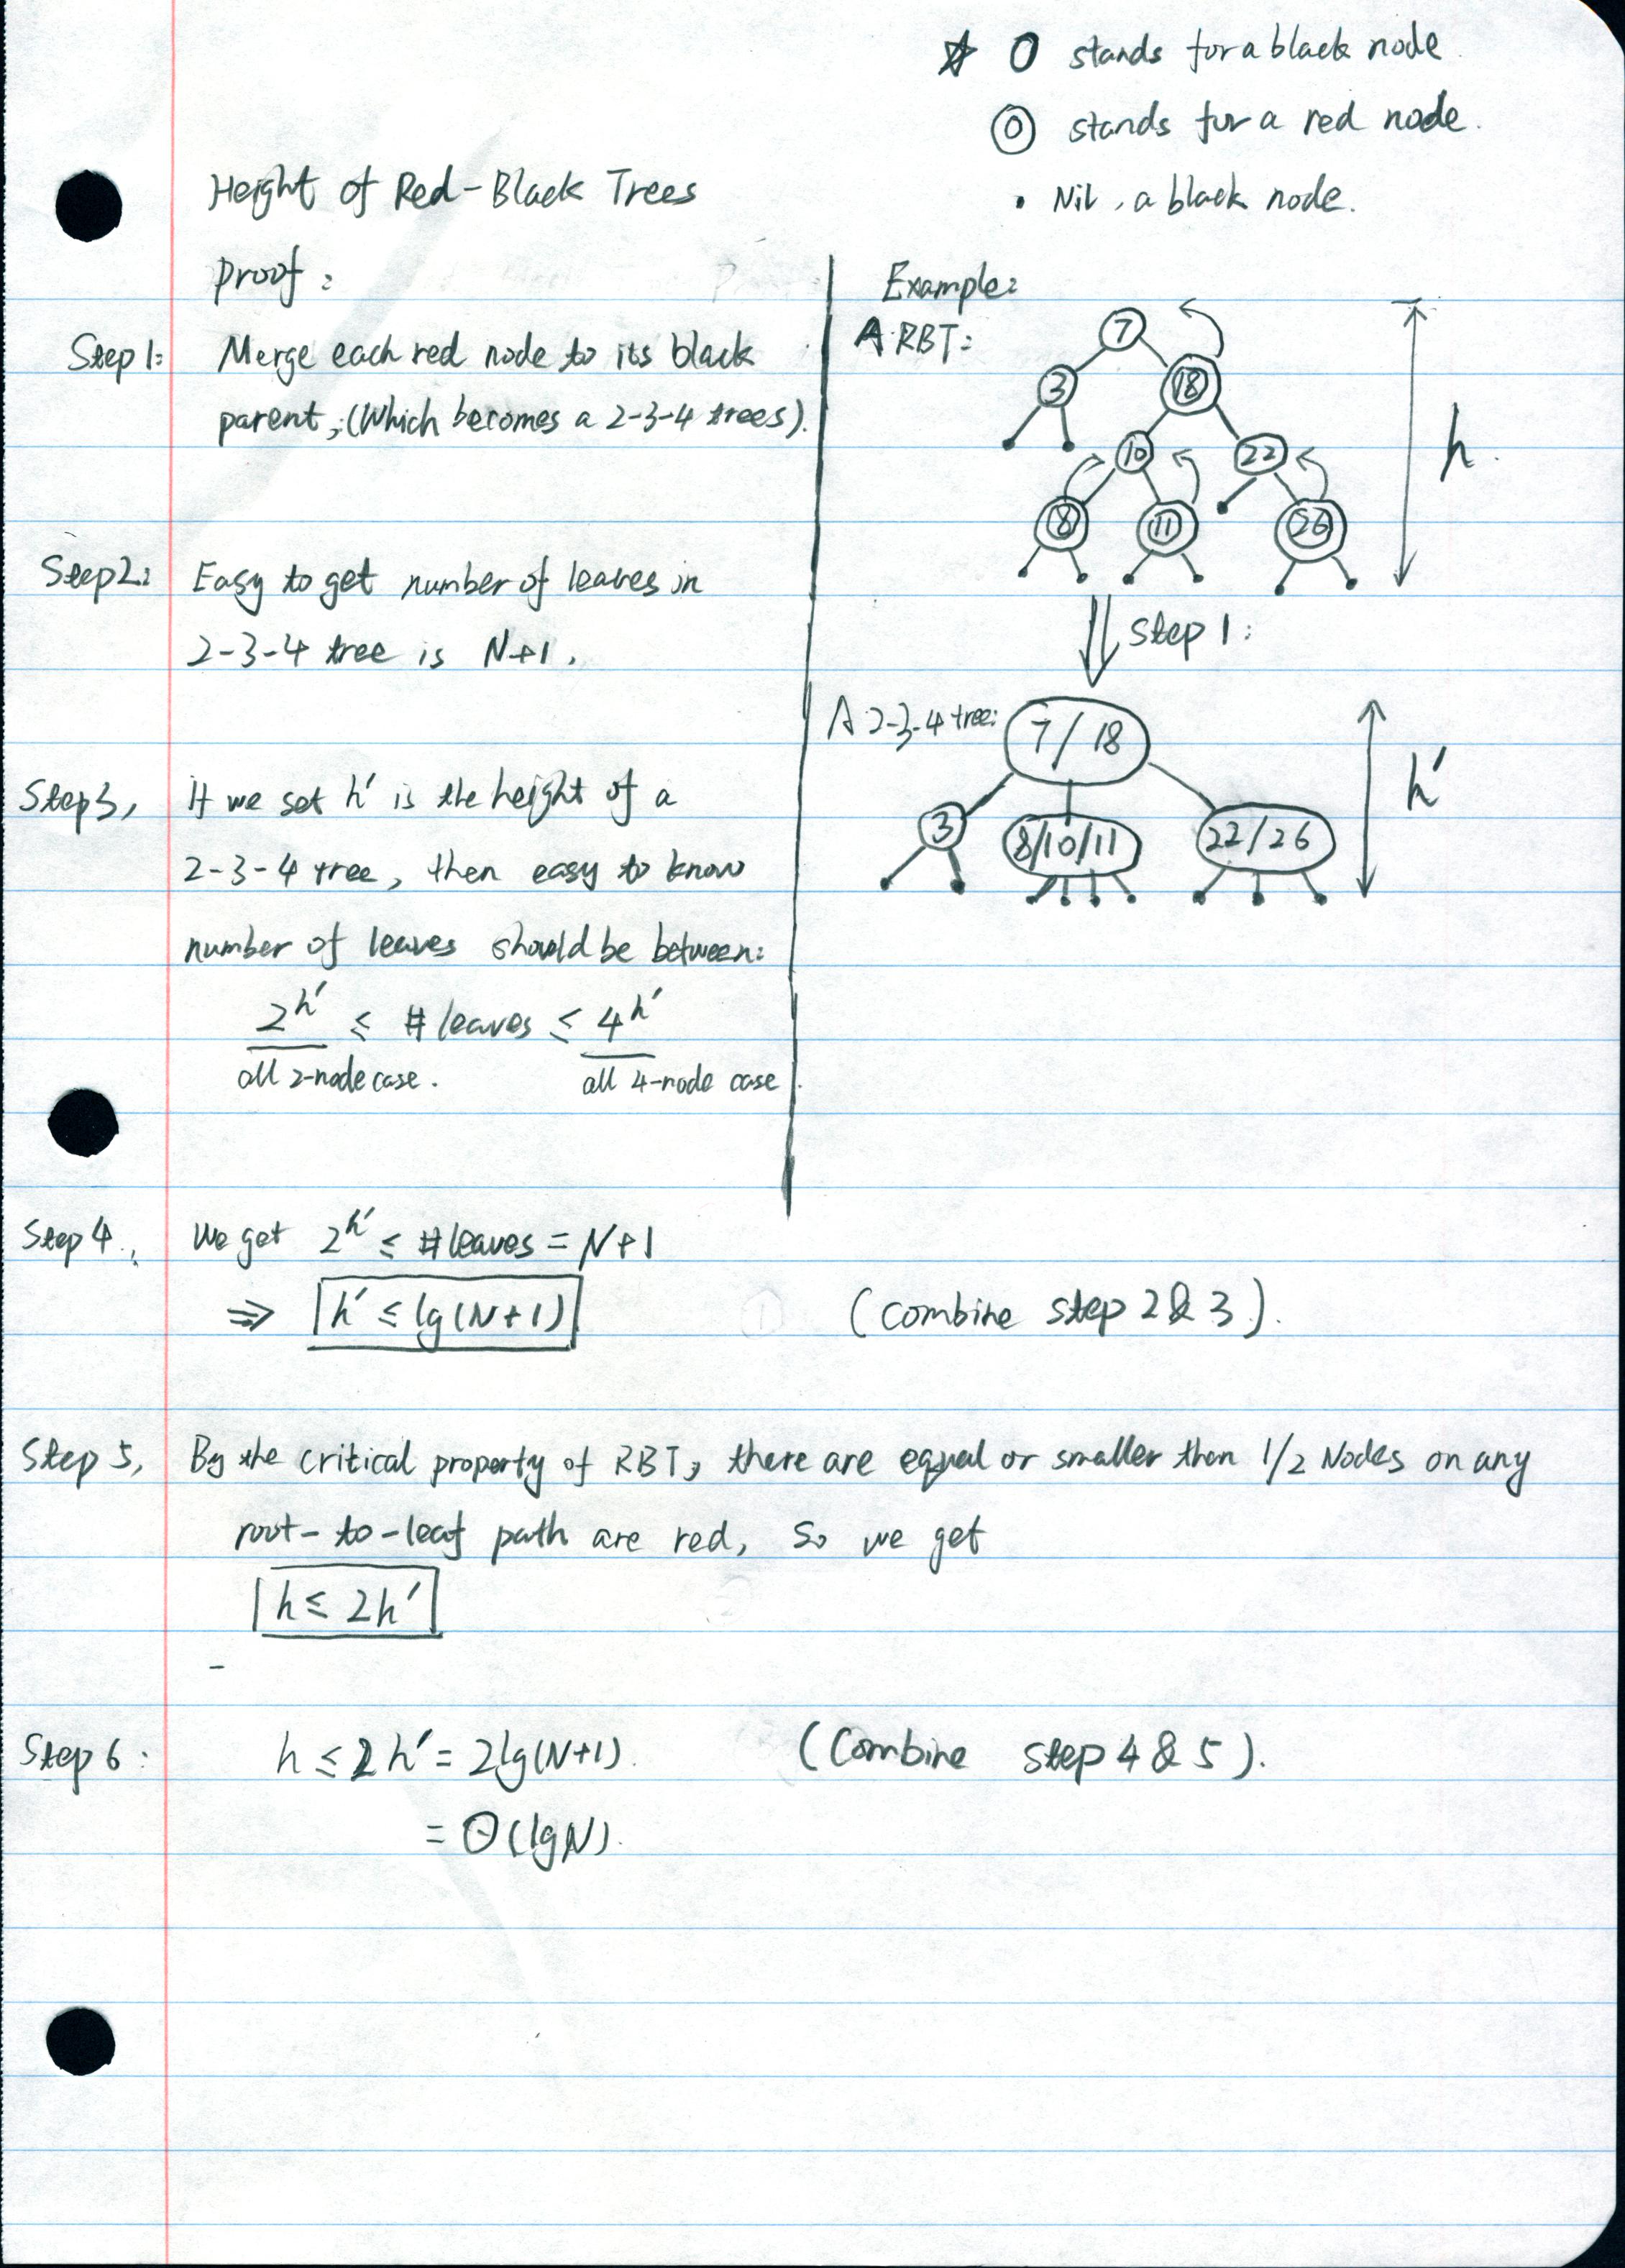 ☆ O stands for a black node.
Ⓞ stands for a red node.
• Nil, a black node.
Height of Red-Black Trees
Proof:
Step 1: Merge each red node to its black
parent, (Which becomes a 2-3-4 trees).
Step 2: Easy to get number of leaves in
2-3-4 tree is N+1.
Step 3, If we set h' is the height of a
2-3-4 tree, then easy to know
number of leaves should be between:
2^h' ≤ # leaves ≤ 4^h'
all 2-node case. all 4-node case.
Example:
A RBT:
7
3 18
10 22
8 11 26
h.
step 1:
A 2-3-4 tree:
7/18
3 8/10/11 22/26
h'
Step 4, We get 2^h' ≤ # leaves = N+1
⇒ h' ≤ lg(N+1) (combine step 2 & 3).
Step 5, By the critical property of RBT, there are equal or smaller than 1/2 Nodes on any
root-to-leaf path are red, so we get
h ≤ 2h'
Step 6: h ≤ 2h' = 2lg(N+1). (Combine step 4 & 5).
= Θ(lgN).